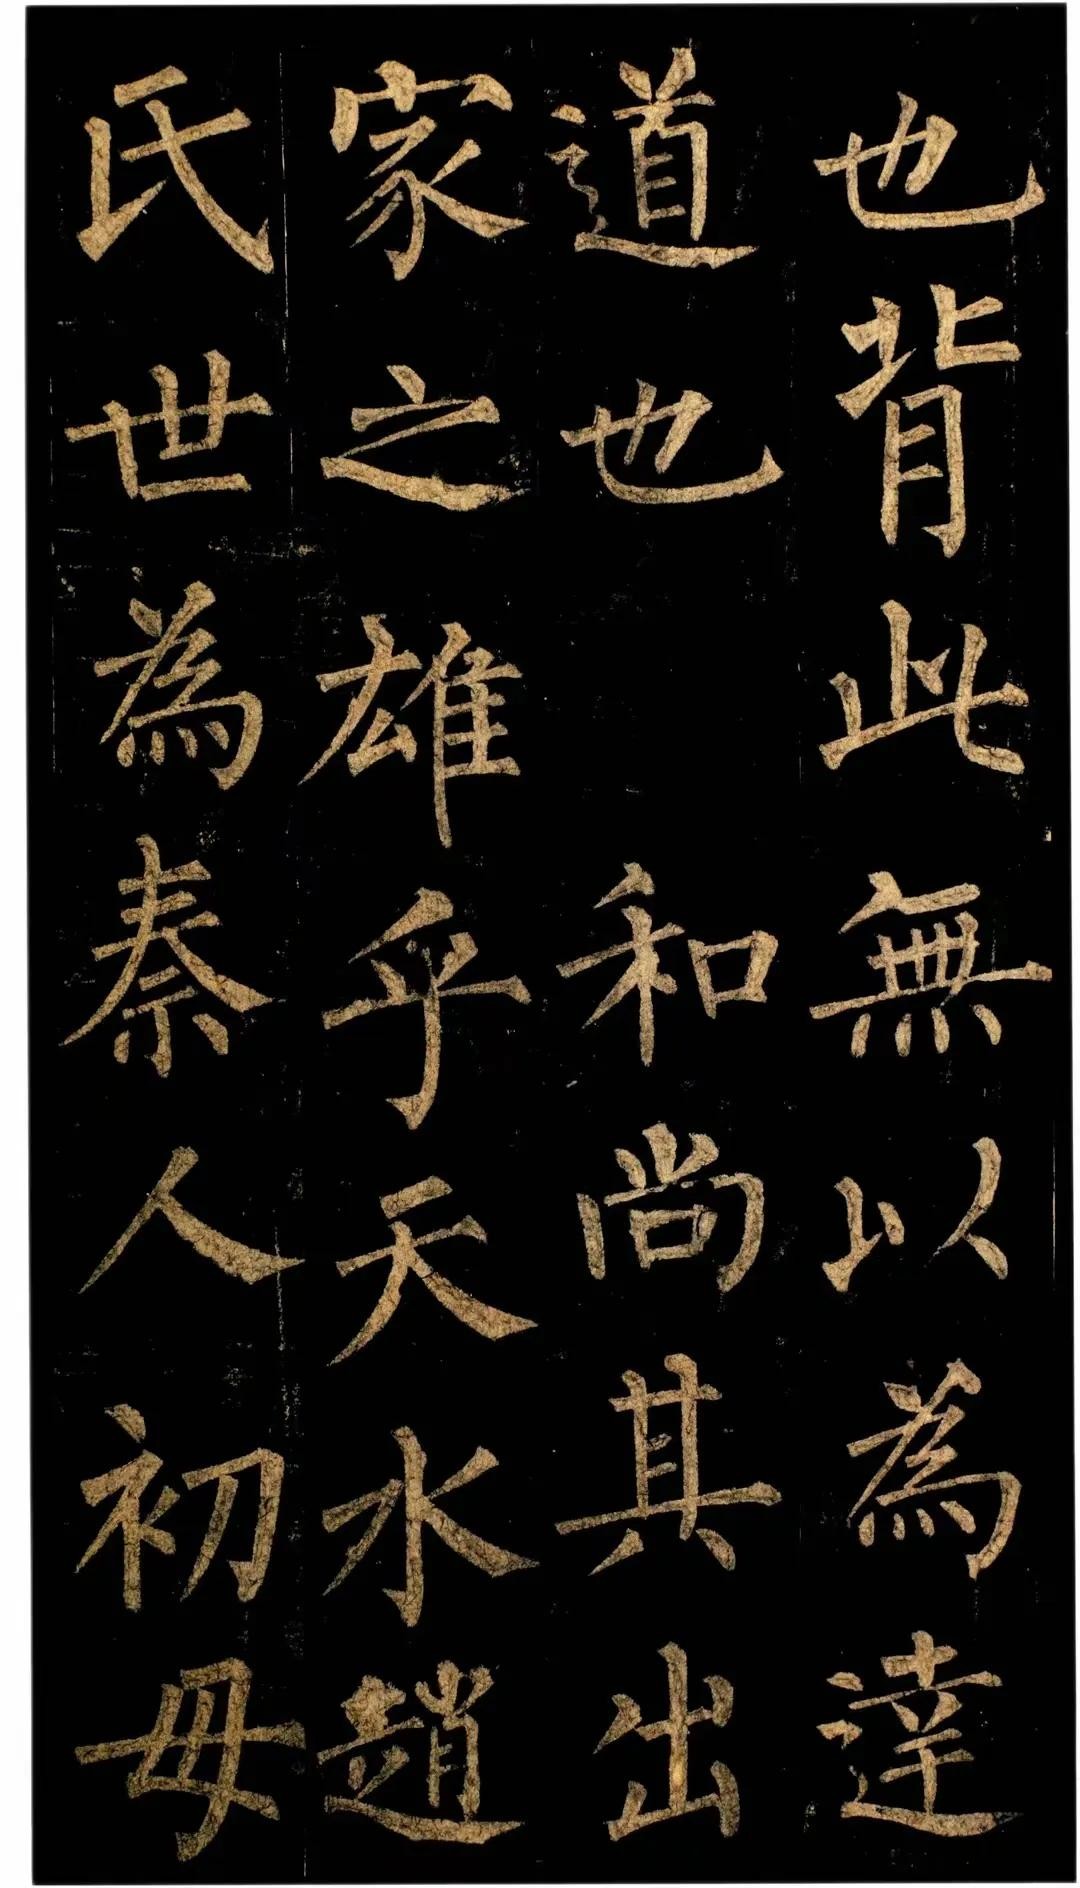 也背此無以為達
道也　和尚其出
家之雄乎天水趙
氏世為秦人初母